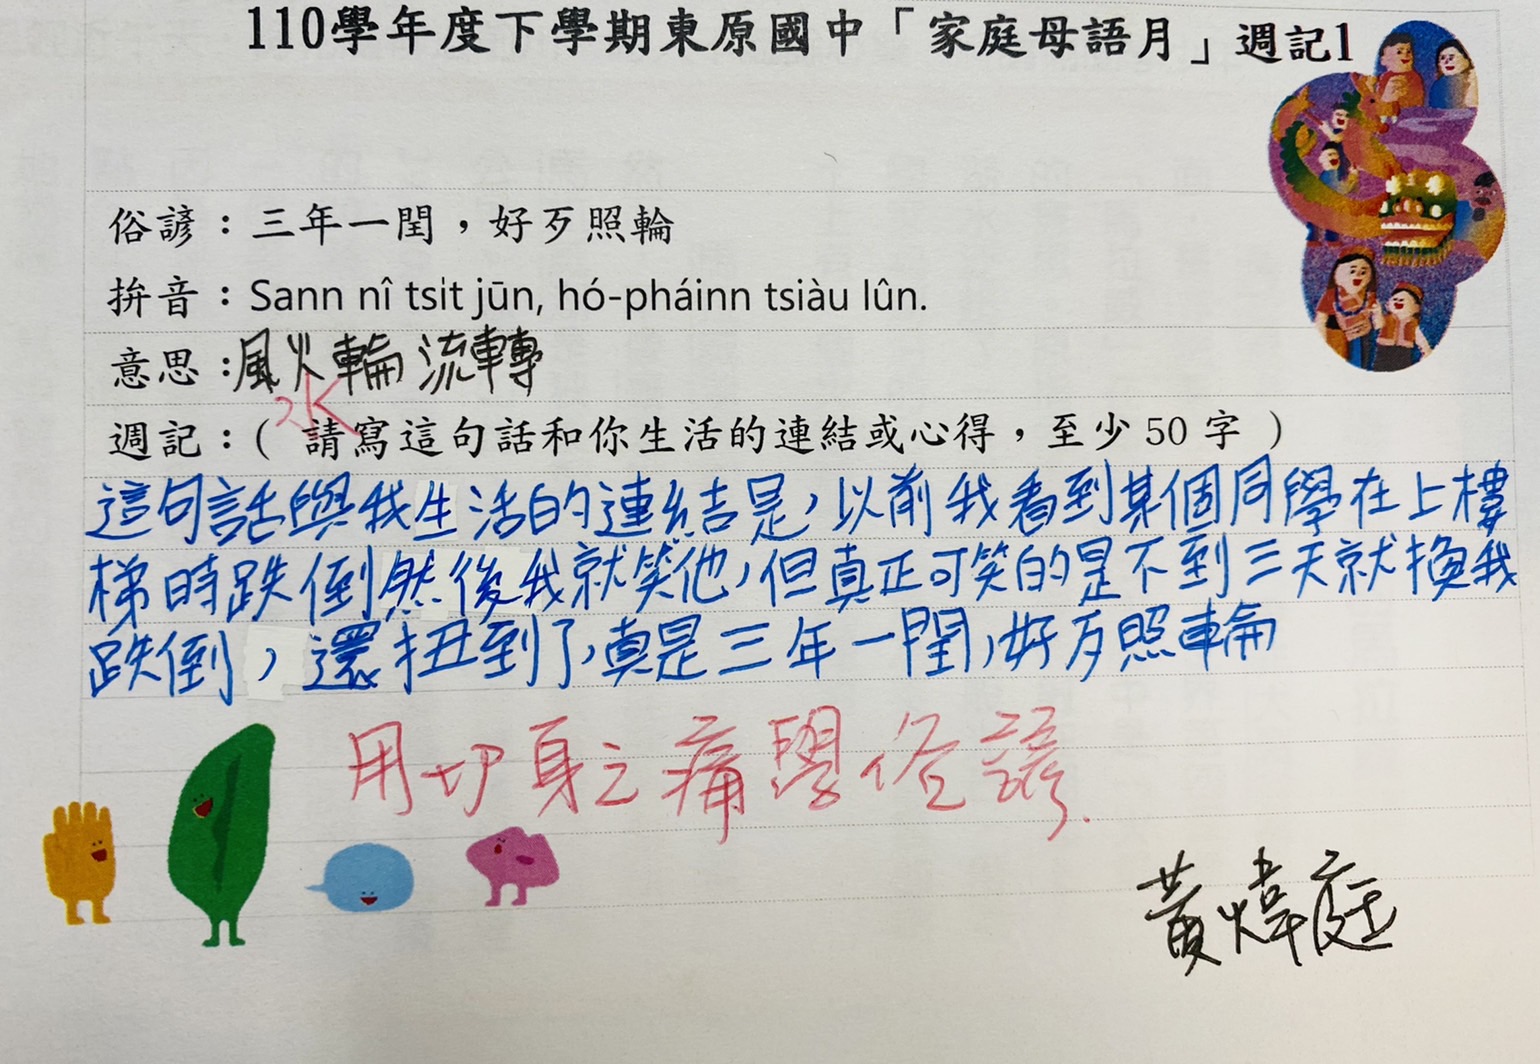 110學年度下學期東原國中「家庭母語月」週記1
俗諺：三年一閏，好歹照輪
拼音：Sann nî tsi̍t jūn, hó-pháinn tsiàu lûn.
意思：風火輪流轉
水
週記：( 請寫這句話和你生活的連結或心得，至少 50 字 )
這句話與我生活的連結是，以前我看到某個同學在上樓
梯時跌倒然後我就笑他，但真正可笑的是不到三天就換我
跌倒，還扭到了，真是三年一閏，好歹照輪
用切身之痛學俗諺.
黃煒庭